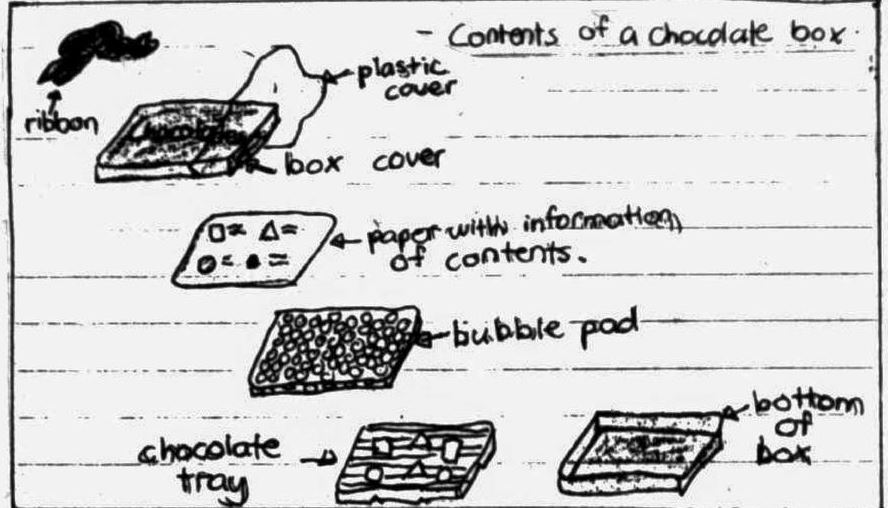 - Contents of a chocolate box.
plastic
cover
ribbon
Chocolate
box cover
paper with information
of contents.
bubble pad
chocolate
tray
bottom
of
box